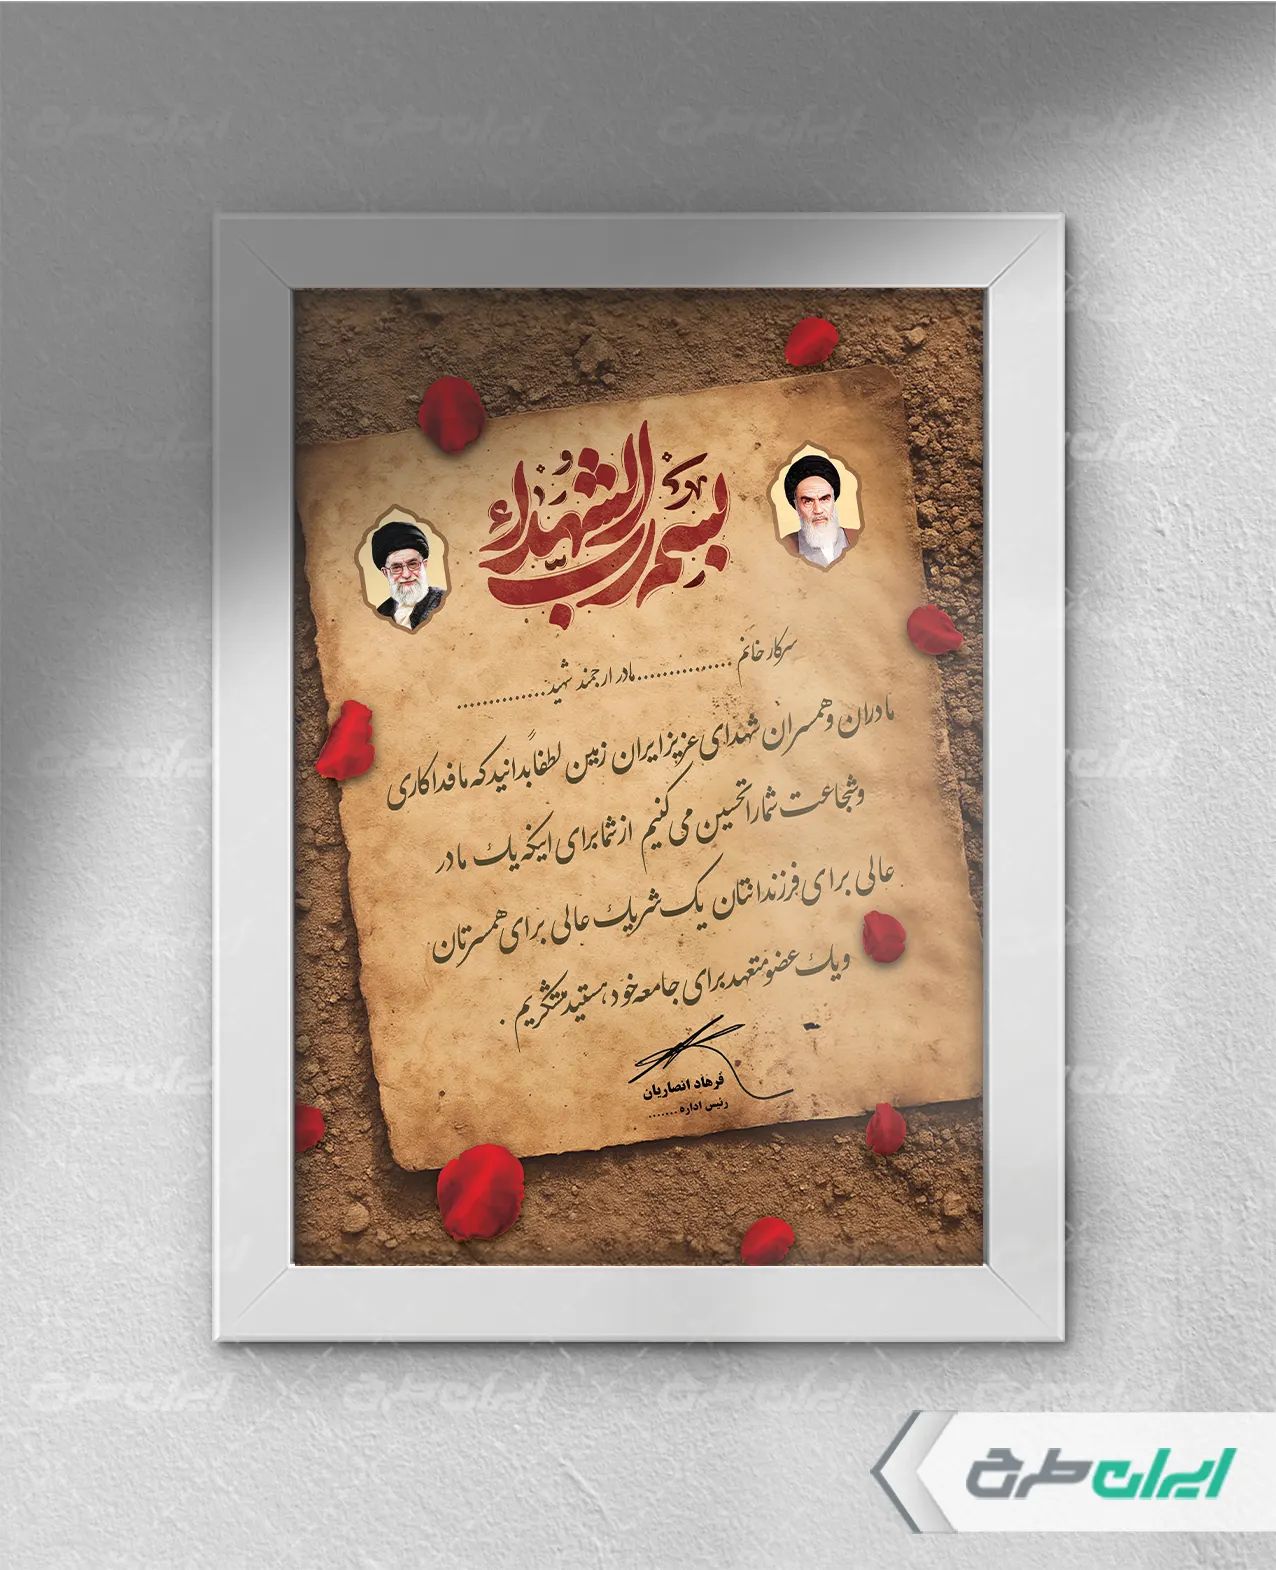 بسم رب الشهداء و
سرکار خانم ............... مادر ارجمند شهید ...............
مادران و همسران شهدای عزیز ایران زمین لطفاً بدانید که ما فداکاری
و شجاعت شما را تحسین می کنیم از شما برای اینکه یك مادر
عالی برای فرزندانتان یک شریك عالی برای همسرتان
و یك عضو متعهد برای جامعه خود هستید متشکریم .
فرهاد انصاریان
رئیس اداره .......
ایران طرح